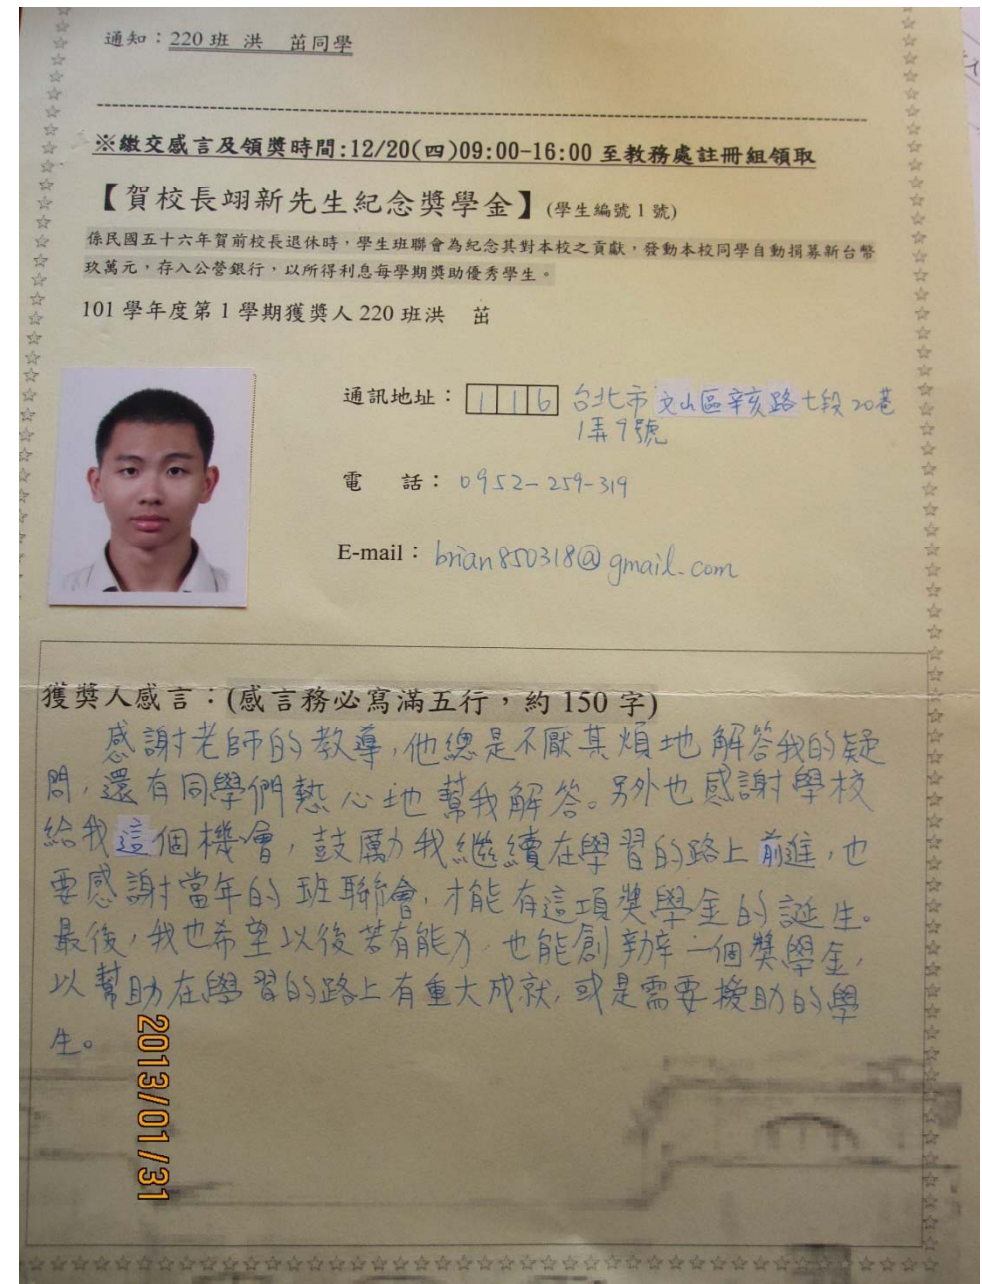 通知：220 班 洪　茁同學
※繳交感言及領獎時間:12/20(四)09:00-16:00 至教務處註冊組領取
【賀校長翊新先生紀念獎學金】(學生編號 1 號)
係民國五十六年賀前校長退休時，學生班聯會為紀念其對本校之貢獻，發動本校同學自動捐募新台幣
玖萬元，存入公營銀行，以所得利息每學期獎助優秀學生。
101 學年度第 1 學期獲獎人 220 班洪　茁
通訊地址：116 台北市文山區辛亥路七段20巷
1弄9號
電　話：0952-259-319
E-mail：brian850318@gmail.com
獲獎人感言：(感言務必寫滿五行，約 150 字)
感謝老師的教導,他總是不厭其煩地解答我的疑
問,還有同學們熱心地幫我解答。另外也感謝學校
給我這個機會,鼓勵我繼續在學習的路上前進,也
要感謝當年的班聯會,才能有這項獎學金的誕生。
最後,我也希望以後若有能力,也能創辦一個獎學金,
以幫助在學習的路上有重大成就,或是需要援助的學
生。
2013/01/31